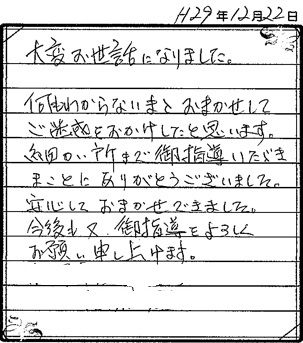 H29年12月22日
大変お世話になりました。
何もわからないまゝおまかせして
ご迷惑をおかけしたと思います。
細かい所まで御指導いただき
まことにありがとうございました。
安心しておまかせできました。
今後も又御指導をよろしく
お願い申し上げます。